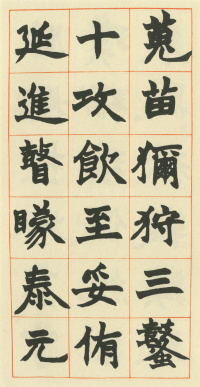 蒐苗獮狩三
十攻飲至妥侑
延進瞽矇泰元